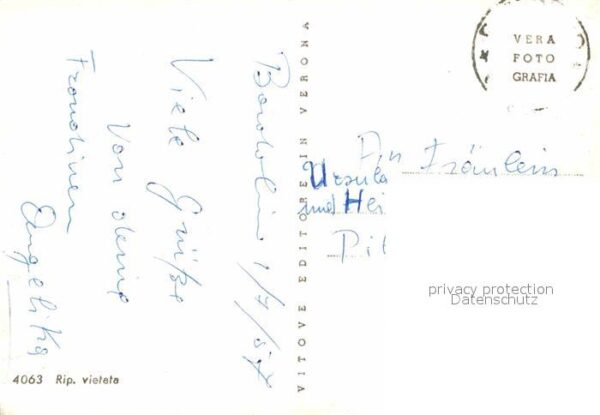 Bardolino 1/7/57
Viele Grüße
von deine
Freundinen
Angelika
VITOVE EDITORE IN VERONA
VERA
FOTO
GRAFIA
An Fräulein
Ursula
und Hei
Pil
privacy protection
Datenschutz
4063 Rip. vietata